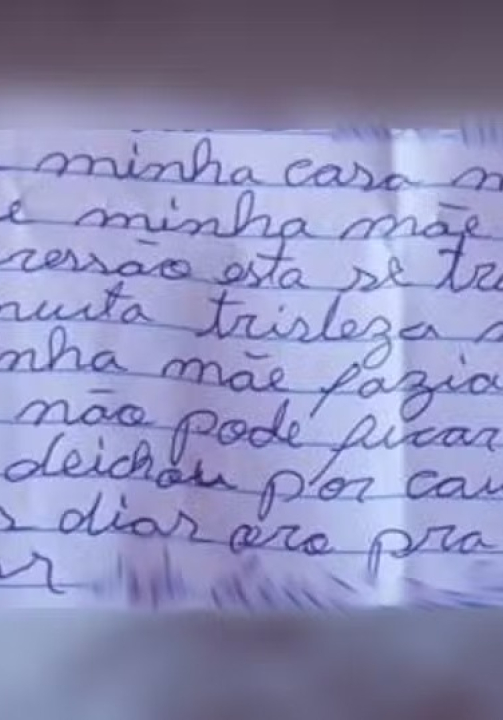 minha casa
e minha mãe
ressão esta se tra
muita tristeza
nha mãe fazia
não pode ficar
deichou por cau
s dias era pra
r